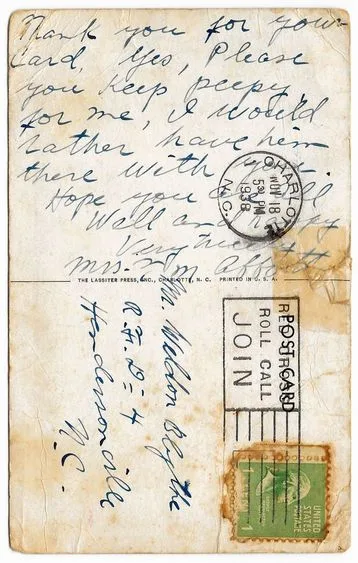 Thank you for your
Card. Yes, Please
you keep peepy,
for me, I would
rather have him
there with
Hope you
Well and
Very
Mrs. M. Abb
THE LASSITER PRESS, INC., CHARLOTTE, N. C. PRINTED IN U. S. A.
CHARLOTTE
NOV 18
530 PM
1938
N.C.
POST CARD
RED CROSS
ROLL CALL
JOIN
Mr. Weldon Blythe
R.F.D. = 4
Hendersonville
N.C.
UNITED
STATES
POSTAGE
1 1